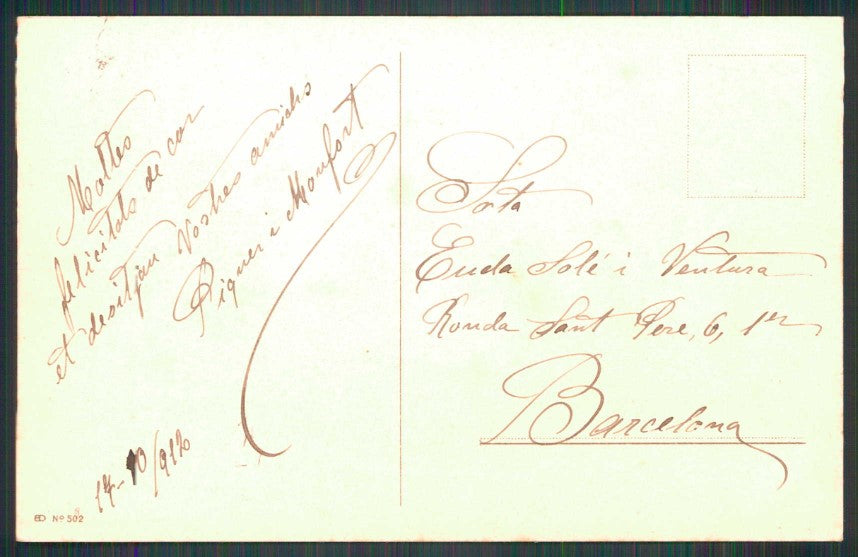 Moltes
felicitats de cor
et desitjan Vostres amichs
Piquer i Monfort
14-10/912
Srta
Euda Solé i Ventura
Ronda Sant Pere, 6, 1er
Barcelona
Nº 502